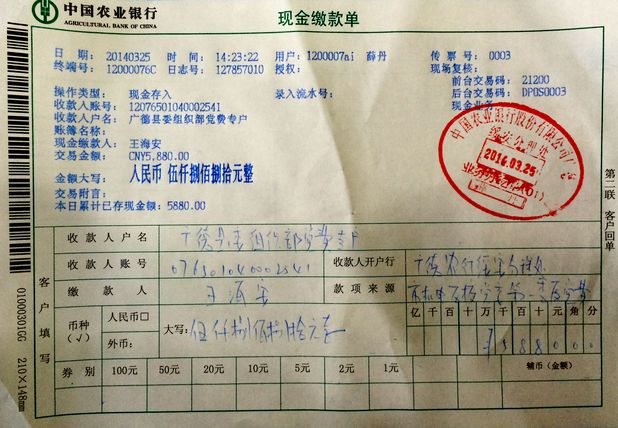 中国农业银行
AGRICULTURAL BANK OF CHINA
现金缴款单
日 期: 20140325 时 间: 14:23:22 用户: 1200007ai 薛丹 传 票 号: 0003
终端号: 12000076C 日志号: 127857010 授权: 现场复核:
前台交易码: 21200
操作类型: 现金存入 录入流水号: 后台交易码: DP0S0003
收款人账号: 12076501040002541 现金业务
收款人户名: 广德县委组织部党费专户
账簿名称:
现金缴款人: 王海安
交易金额: CNY5,880.00
金额大写: 人民币 伍仟捌佰捌拾元整
交易附言:
本日累计已存现金额: 5880.00
中国农业银行股份有限公司广德
缓安分理处
业务办讫章
(01)
第二联 客户回单
客户填写
收款人户名 广德县委组织部党费专户
收款人账号 076501040002541 收款人开户行
缴款人 王海安 款项来源
币种 (√) 人民币□ 大写: 伍仟捌佰捌拾元整 亿 千 百 十 万 千 百 十 元 角 分
外币: ¥ 5 8 8 0 0 0
券 别 100元 50元 20元 10元 5元 2元 1元 辅币（金额）
01000301GG 210×148mm